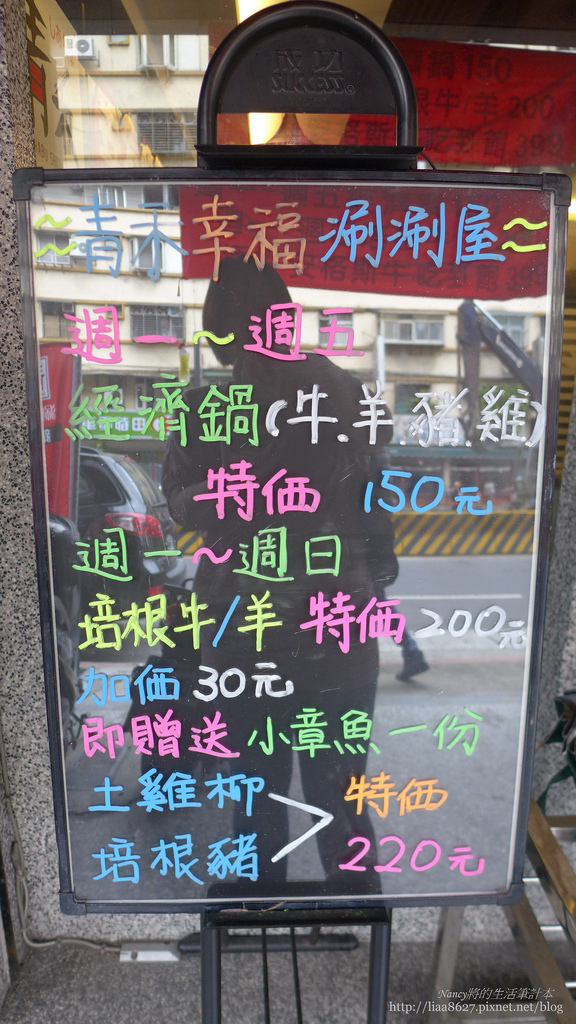 成功
SUCCESS®
鍋150
根牛/羊200
~青禾幸福涮涮屋~
週一~週五
經濟鍋(牛.羊.豬.雞)
特価 150元
週一~週日
培根牛/羊 特価 200元
加価 30元
即贈送 小章魚一份
土雞柳
培根豬 > 特価
220元
Nancy將的生活筆計本
http://liaa8627.pixnet.net/blog